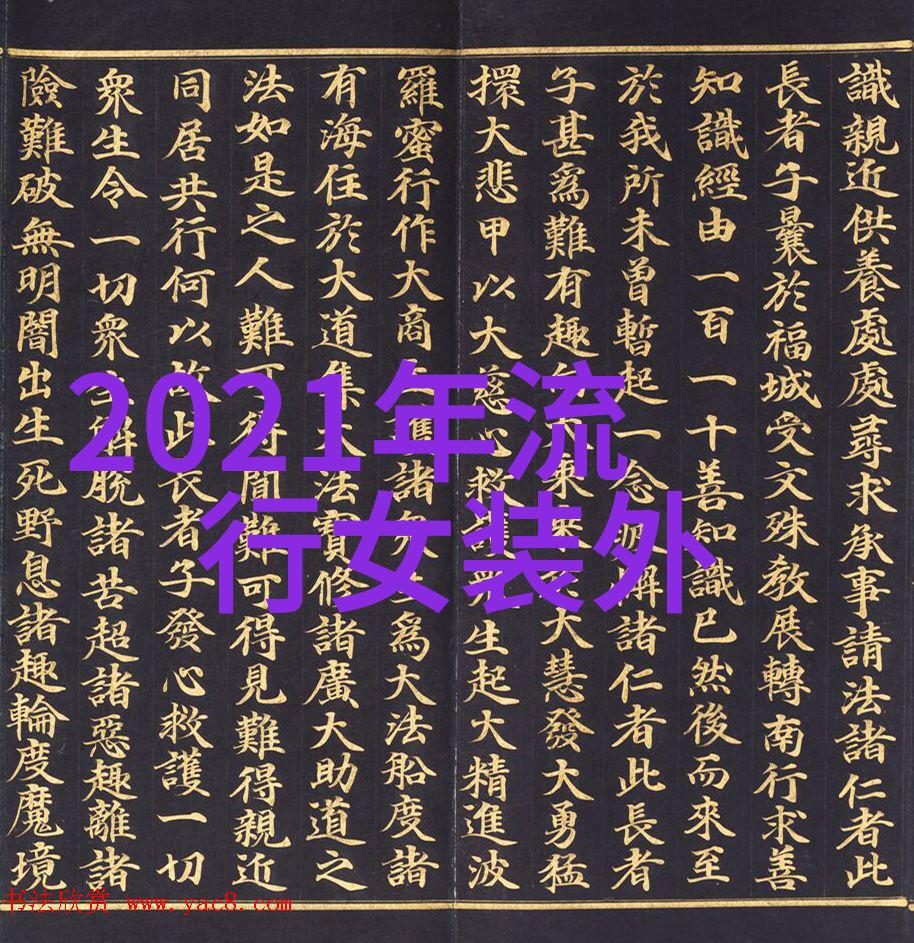 識親近供養處處尋求承事請法諸仁者此
長者子曩於福城受文殊教展轉南行求善
知識經由一百一十善知識已然後而來至
於我所未曾暫起一念疲懈諸仁者此長者
子甚為難有趣來大慧發大勇猛
擐大悲甲以大慈心救護眾生起大精進波
羅蜜行作大商主護諸眾生為大法船度諸
有海住於大道集大法寶修諸廣大助道之
法如是之人難可得聞難可得見難得親近
同居共行何以故此長者子發心救護一切
眾生令一切眾生解脫諸苦超諸惡趣離諸
險難破無明闇出生死野息諸趣輪度魔境
2021年流
行女装外
书法欣赏 www.yac8.com